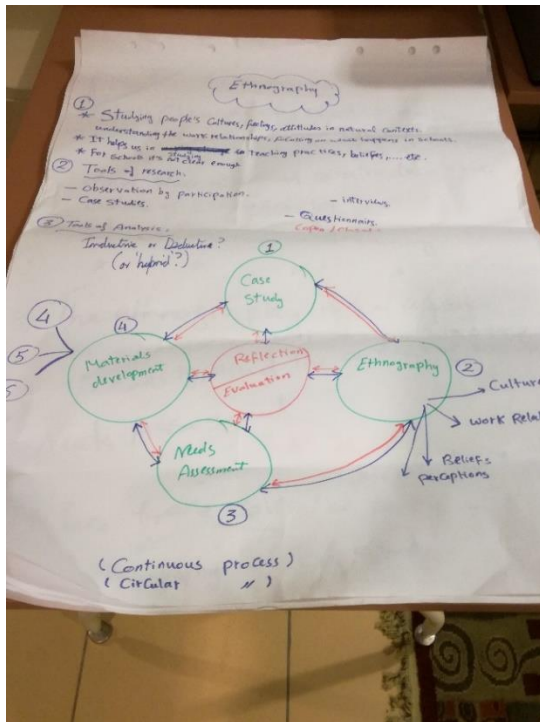 Ethnography
①
* Studying people's cultures, feelings, attitudes in natural contexts.
understanding the work relationships, focusing on what happens in schools.
* It helps us in studying teaching practices, beliefs, .... etc.
* For schools it's not clear enough
② Tools of research.
— Observation by participation.
— Case Studies.
— interviews
— Questionnairs.
③ Tools of Analysis.
Inductive or Deductive?
(or 'hybrid'?)
①
Case
Study
④
Materials
development
Reflection
Evaluation
Ethnography
②
Needs
Assessment
③
④
⑤
Culture
work Relat
Beliefs
perceptions
(Continuous process)
(Circular 〃 )